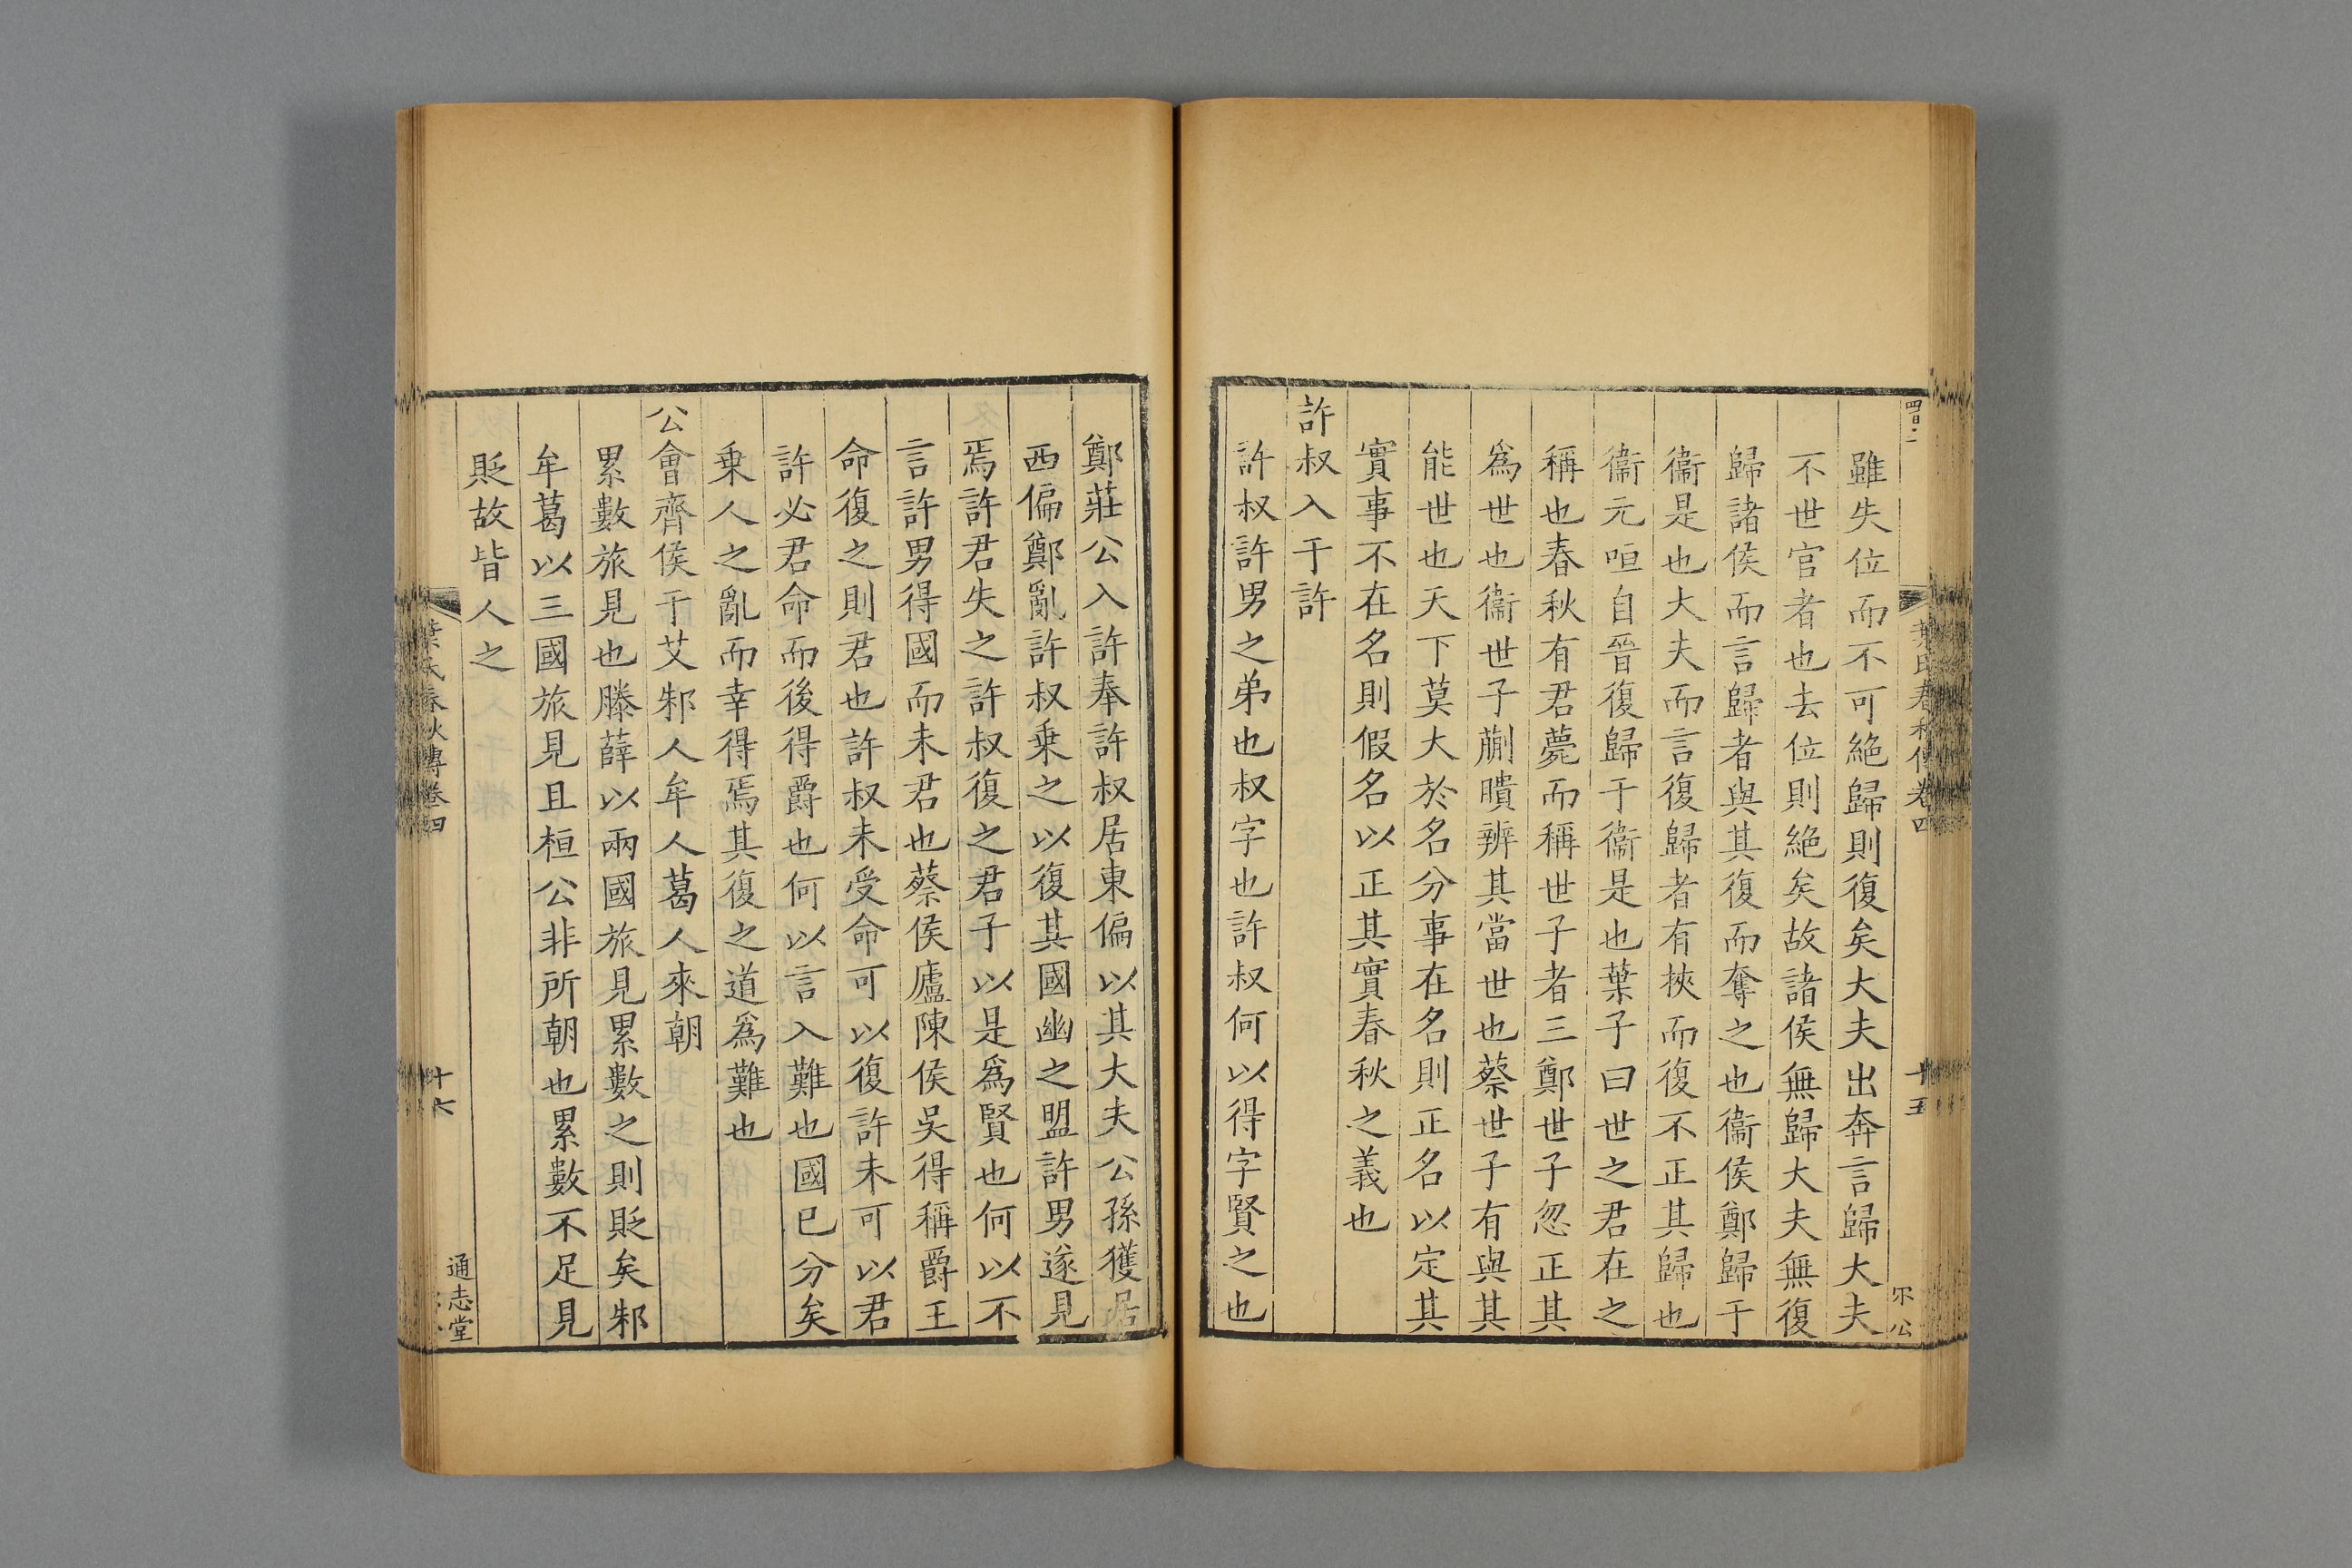 雖失位而不可絶歸則復矣大夫出奔言歸大夫
不世官者也去位則絶矣故諸侯無歸大夫無復
歸諸侯而言歸者與其復而奪之也衞侯鄭歸于
衞是也大夫而言復歸者有挾而復不正其歸也
衞元咺自晉復歸于衞是也葉子曰世之君在之
稱也春秋有君薨而稱世子者三鄭世子忽正其
爲世也衞世子蒯聵辨其當世也蔡世子有與其
能世也天下莫大於名分事在名則正名以定其
實事不在名則假名以正其實春秋之義也
許叔入于許
許叔許男之弟也叔字也許叔何以得字賢之也
鄭莊公入許奉許叔居東偏以其大夫公孫獲居
西偏鄭亂許叔乗之以復其國幽之盟許男遂見
焉許君失之許叔復之君子以是爲賢也何以不
言許男得國而未君也蔡侯廬陳侯吴得稱爵王
命復之則君也許叔未受命可以復許未可以君
許必君命而後得爵也何以言入難也國已分矣
乗人之亂而幸得焉其復之道爲難也
公會齊侯于艾邾人牟人葛人來朝
累數旅見也滕薛以兩國旅見累數之則貶矣邾
牟葛以三國旅見且桓公非所朝也累數不足見
貶故皆人之
葉氏春秋傳卷四
十六
通志堂